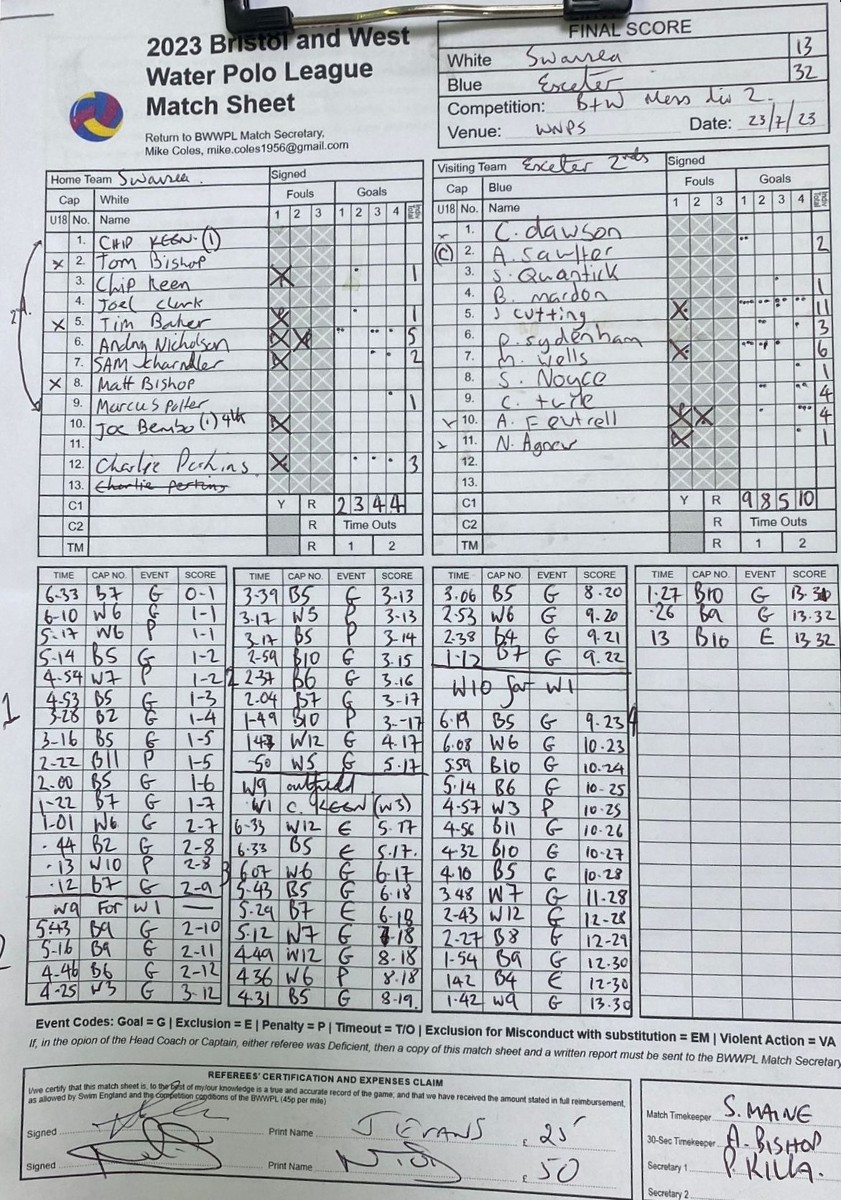 2023 Bristol and West
Water Polo League
Match Sheet
Return to BWWPL Match Secretary,
Mike Coles, mike.coles1956@gmail.com
FINAL SCORE
White Swansea 13
Blue Exeter 32
Competition: B+W Mens Div 2.
Venue: WNPS Date: 23/7/23
Home Team Swansea. Signed
Cap White Fouls Goals
U18 No. Name 1 2 3 1 2 3 4 Indiv Total
1. CHIP KEEN (1)
x 2. Tom Bishop
3. Chip Keen X 1
4. Joel Clark
x 5. Tim Baker X 1
6. Andrw Nicholson X X 5
7. SAM Charndler X 2
x 8. Matt Bishop
9. Marcus Potter 1
10. Joe Bembo (1) 4th X
11.
12. Charlie Perkins X 3
13. Charlie Perkins
C1 Y R 2 3 4 4
C2 R Time Outs
TM R 1 2
Visiting Team Exeter 2nds Signed
Cap Blue Fouls Goals
U18 No. Name 1 2 3 1 2 3 4 Indiv Total
1. C. dawson
(C) 2. A. Sawlter 2
3. S. Quantick
4. B. mardon 1
5. J cutting X 11
6. P. Sydenham 3
7. M. Wells X 6
8. S. Noyce 1
9. C. tuke 4
10. A. Feutrell X X 4
11. N. Agnew X 1
12.
13.
C1 Y R 9 8 5 10
C2 R Time Outs
TM R 1 2
TIME CAP NO. EVENT SCORE
6-33 B7 G 0-1
6-10 W6 G 1-1
5-17 W6 P 1-1
5-14 B5 G 1-2
4-54 W7 P 1-2
1
4-53 B5 G 1-3
3-28 B2 G 1-4
3-16 B5 G 1-5
2-22 B11 P 1-5
2-00 B5 G 1-6
1-22 B7 G 1-7
1-01 W6 G 2-7
.44 B2 G 2-8
.13 W10 P 2-8
.12 b7 G 2-9
W9 For W1 —
2
5-43 B9 G 2-10
5-16 B9 G 2-11
4-46 B6 G 2-12
4-25 W3 G 3-12
TIME CAP NO. EVENT SCORE
3-39 B5 G 3.13
3-17 W5 P 3-13
3.17 B5 P 3-14
2-59 B10 G 3.15
2 2-37 B6 G 3.16
2-04 B7 G 3-17
1-49 B10 P 3-17
1 47 W12 G 4.17
-50 W5 G 5.17
W9 outfield
W1 C. KEEN (W3)
6-33 W12 E 5.17
6.33 B5 E 5.17.
3 6.07 W6 G 6-17
5-43 B5 G 6.18
5-29 B7 E 6-18
5-12 W7 G 7-18
4-49 W12 G 8-18
4 36 W6 P 8.18
4.31 B5 G 8-19.
TIME CAP NO. EVENT SCORE
3.06 B5 G 8.20
2-53 W6 G 9.20
2-38 B4 G 9.21
1-12 B7 G 9.22
W10 for W1
6.19 B5 G 9.23 4
6.08 W6 G 10-23
5.59 B10 G 10.24
5.14 B6 G 10-25
4-57 W3 P 10.25
4-56 B11 G 10-26
4-32 B10 G 10-27
4.10 B5 G 10-28
3 48 W7 G 11-28
2-43 W12 G 12-28
2-27 B8 G 12-29
1-54 B9 G 12.30
142 B4 E 12-30
1-42 W9 G 13.30
TIME CAP NO. EVENT SCORE
1.27 B10 G 13-31
.26 B9 G 13.32
13 B10 E 13 32
Event Codes: Goal = G | Exclusion = E | Penalty = P | Timeout = T/O | Exclusion for Misconduct with substitution = EM | Violent Action = VA
If, in the opion of the Head Coach or Captain, either referee was Deficient, then a copy of this match sheet and a written report must be sent to the BWWPL Match Secretary
REFEREES' CERTIFICATION AND EXPENSES CLAIM
I/we certify that this match sheet is, to the best of my/our knowledge is a true and accurate record of the game, and that we have received the amount stated in full reimbursement,
as allowed by Swim England and the competition conditions of the BWWPL (45p per mile)
Signed Print Name J EVANS £ 25
Signed Print Name £ 50
Match Timekeeper S. MAINE
30-Sec Timekeeper A. BISHOP
Secretary 1 P. KILLA.
Secretary 2